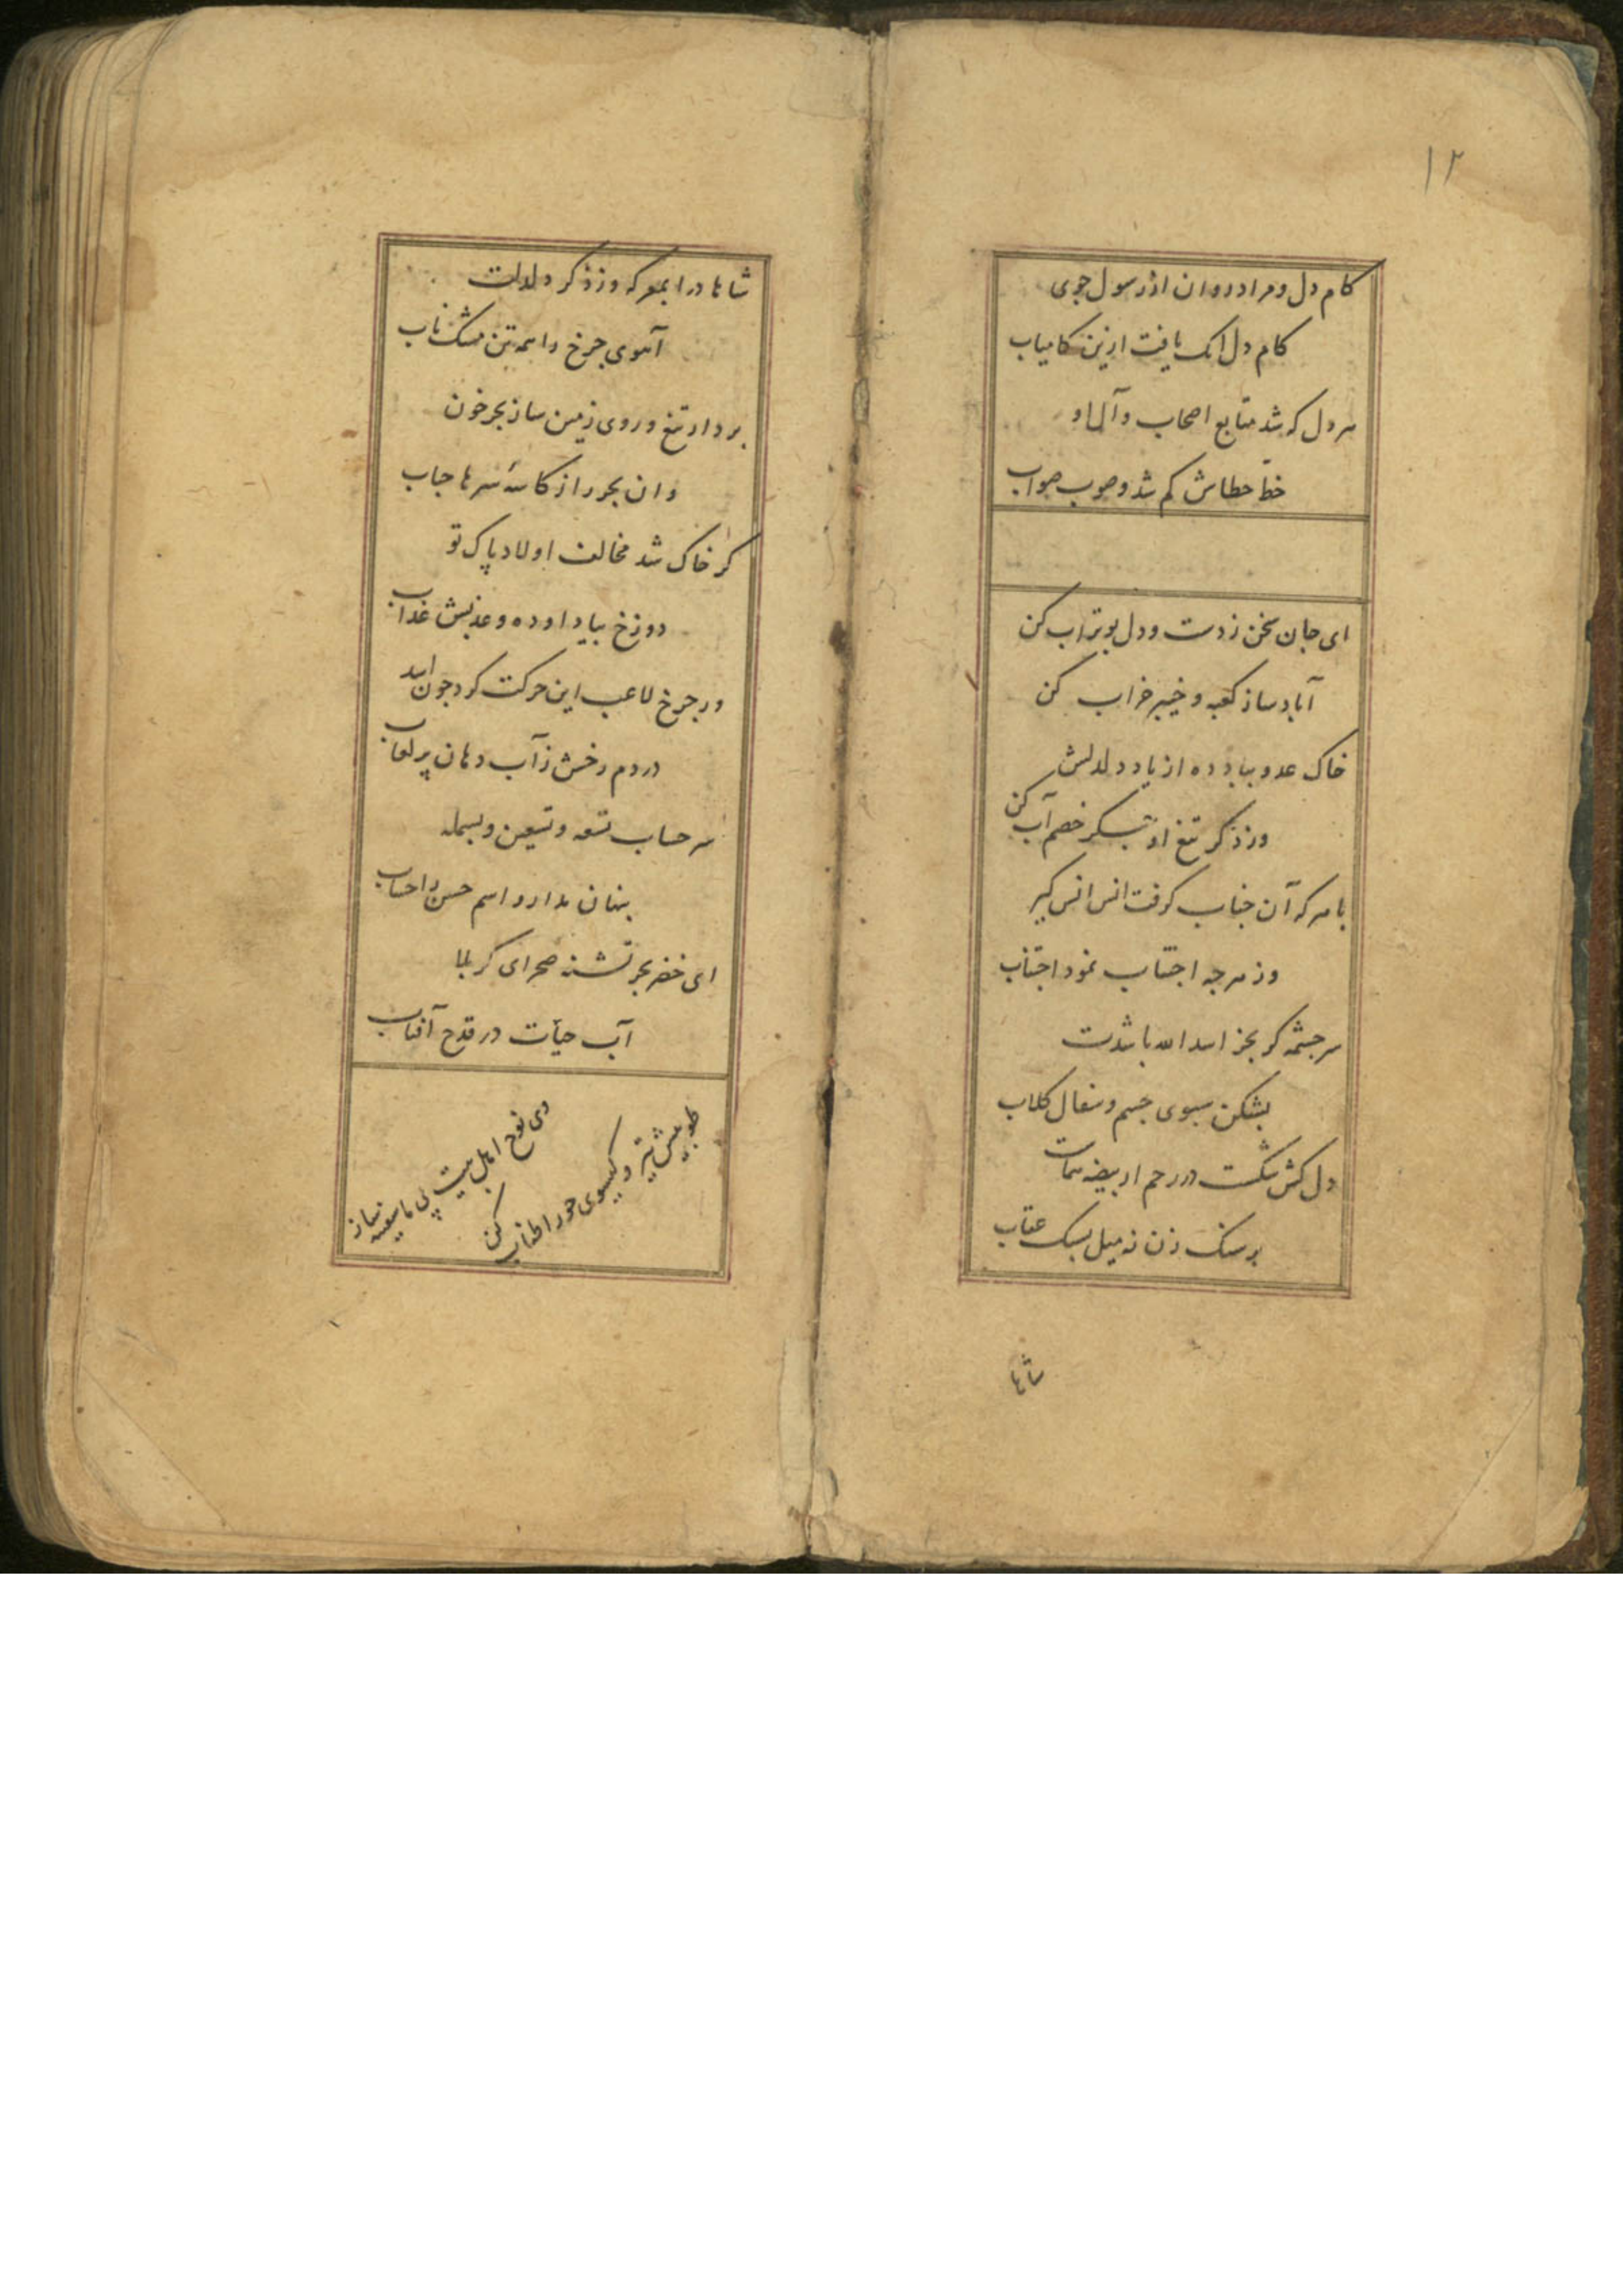 ۱۲
کام دل و مراد روان از رسول جوی
کام دل آنک یافت ازین کامیاب
هر دل که شد متابع اصحاب و آل او
خط خطاش کم شد و صوب صواب
ای جان سخن ز دست و دل بوتراب کن
آباد ساز کعبه و خیبر خراب کن
خاک عدو بباد ده از یاد دلدلش
وز ذکر تیغ او جگر خصم آب کن
با هر که آن جناب گرفت انس انس گیر
وز هرچه اجتناب نمود اجتناب
سرچشمه گر بجز اسد الله باشدت
بشکن سبوی جسم و سفال کلاب
دل کش شکست در رحم از بیضه
بر سنگ زن نه میل بسنگ عقاب
شاها
شاها درا بمعرکه وز ذکر دلدلت
آهوی چرخ را همه تن مشک ناب
بردار تیغ و روی زمین ساز بحر خون
وان بحر را از کاسهٔ سرها حباب
گر خاک شد مخالف اولاد پاک تو
دوزخ بیاد او ده و عذبش عذاب
ور چرخ لاعب این حرکت کرد چون اسد
در دم رخش ز آب دهان پر لعاب
سر حساب تسعه و تسعین و بسمله
پنهان ندارد و اسم حسن را حساب
ای خضر بحر تشنهٔ صحرای کربلا
آب حیات در قدح آفتاب
وی نوح اهل بیت پی ما سفینه ساز
طوبیش تیر و گیسوی حور اطناب کن